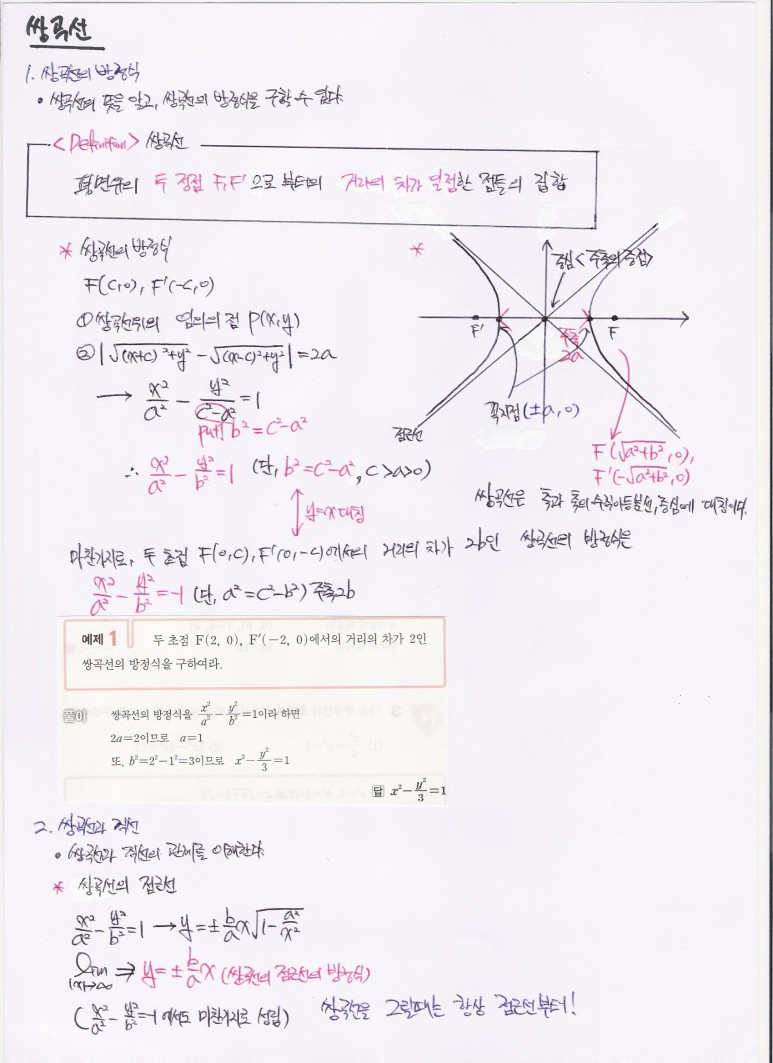 쌍곡선
1. 쌍곡선의 방정식
• 쌍곡선의 뜻을 알고, 쌍곡선의 방정식을 구할 수 있다.
<Definition> 쌍곡선
평면위의 두 정점 F, F'으로 부터의 거리의 차가 일정한 점들의 집합
* 쌍곡선의 방정식
F(c,0), F'(-c,0)
① 쌍곡선위의 임의의 점 P(x,y)
② |√((x+c)²+y²) - √((x-c)²+y²)| = 2a
→ x²/a² - y²/(c²-a²) = 1
put! b² = c²-a²
∴ x²/a² - y²/b² = 1 (단, b² = c²-a², c>a>0)
*
중심<주축의 중점>
F'
F
주축
2a
꼭지점(±a,0)
점근선
F(√(a²+b²),0),
F'(-√(a²+b²),0)
쌍곡선은 축과 축의 수직이등분선, 중심에 대칭이다.
y=x 대칭
마찬가지로, 두 초점 F(0,c), F'(0,-c)에서의 거리의 차가 2b인 쌍곡선의 방정식은
x²/a² - y²/b² = -1 (단, a² = c²-b²) 주축2b
예제 1 두 초점 F(2, 0), F'(-2, 0)에서의 거리의 차가 2인
쌍곡선의 방정식을 구하여라.
풀이 쌍곡선의 방정식을 x²/a² - y²/b² = 1이라 하면
2a=2이므로 a=1
또, b²=2²-1²=3이므로 x² - y²/3 = 1
답 x² - y²/3 = 1
2. 쌍곡선과 직선
• 쌍곡선과 직선의 관계를 이해한다.
* 쌍곡선의 점근선
x²/a² - y²/b² = 1 → y = ± b/a x √(1 - a²/x²)
lim |x|→∞ ⇒ y = ± b/a x (쌍곡선의 점근선의 방정식)
(x²/a² - y²/b² = -1 에서도 마찬가지로 성립) 쌍곡선을 그릴때는 항상 점근선부터!